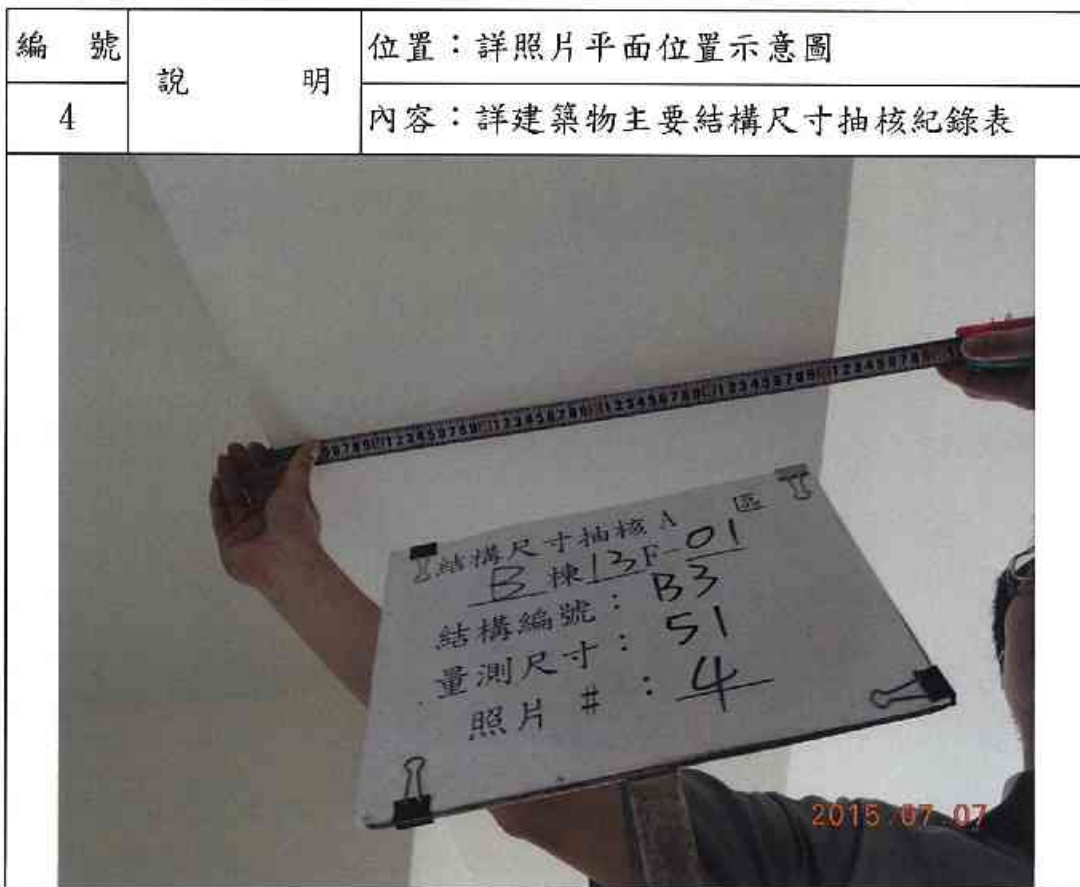 編 號
說 明
位置：詳照片平面位置示意圖
4
內容：詳建築物主要結構尺寸抽核紀錄表
結構尺寸抽核 A 區
B 棟 13F-01
結構編號：B3
量測尺寸：51
照片 #：4
2015.07.07